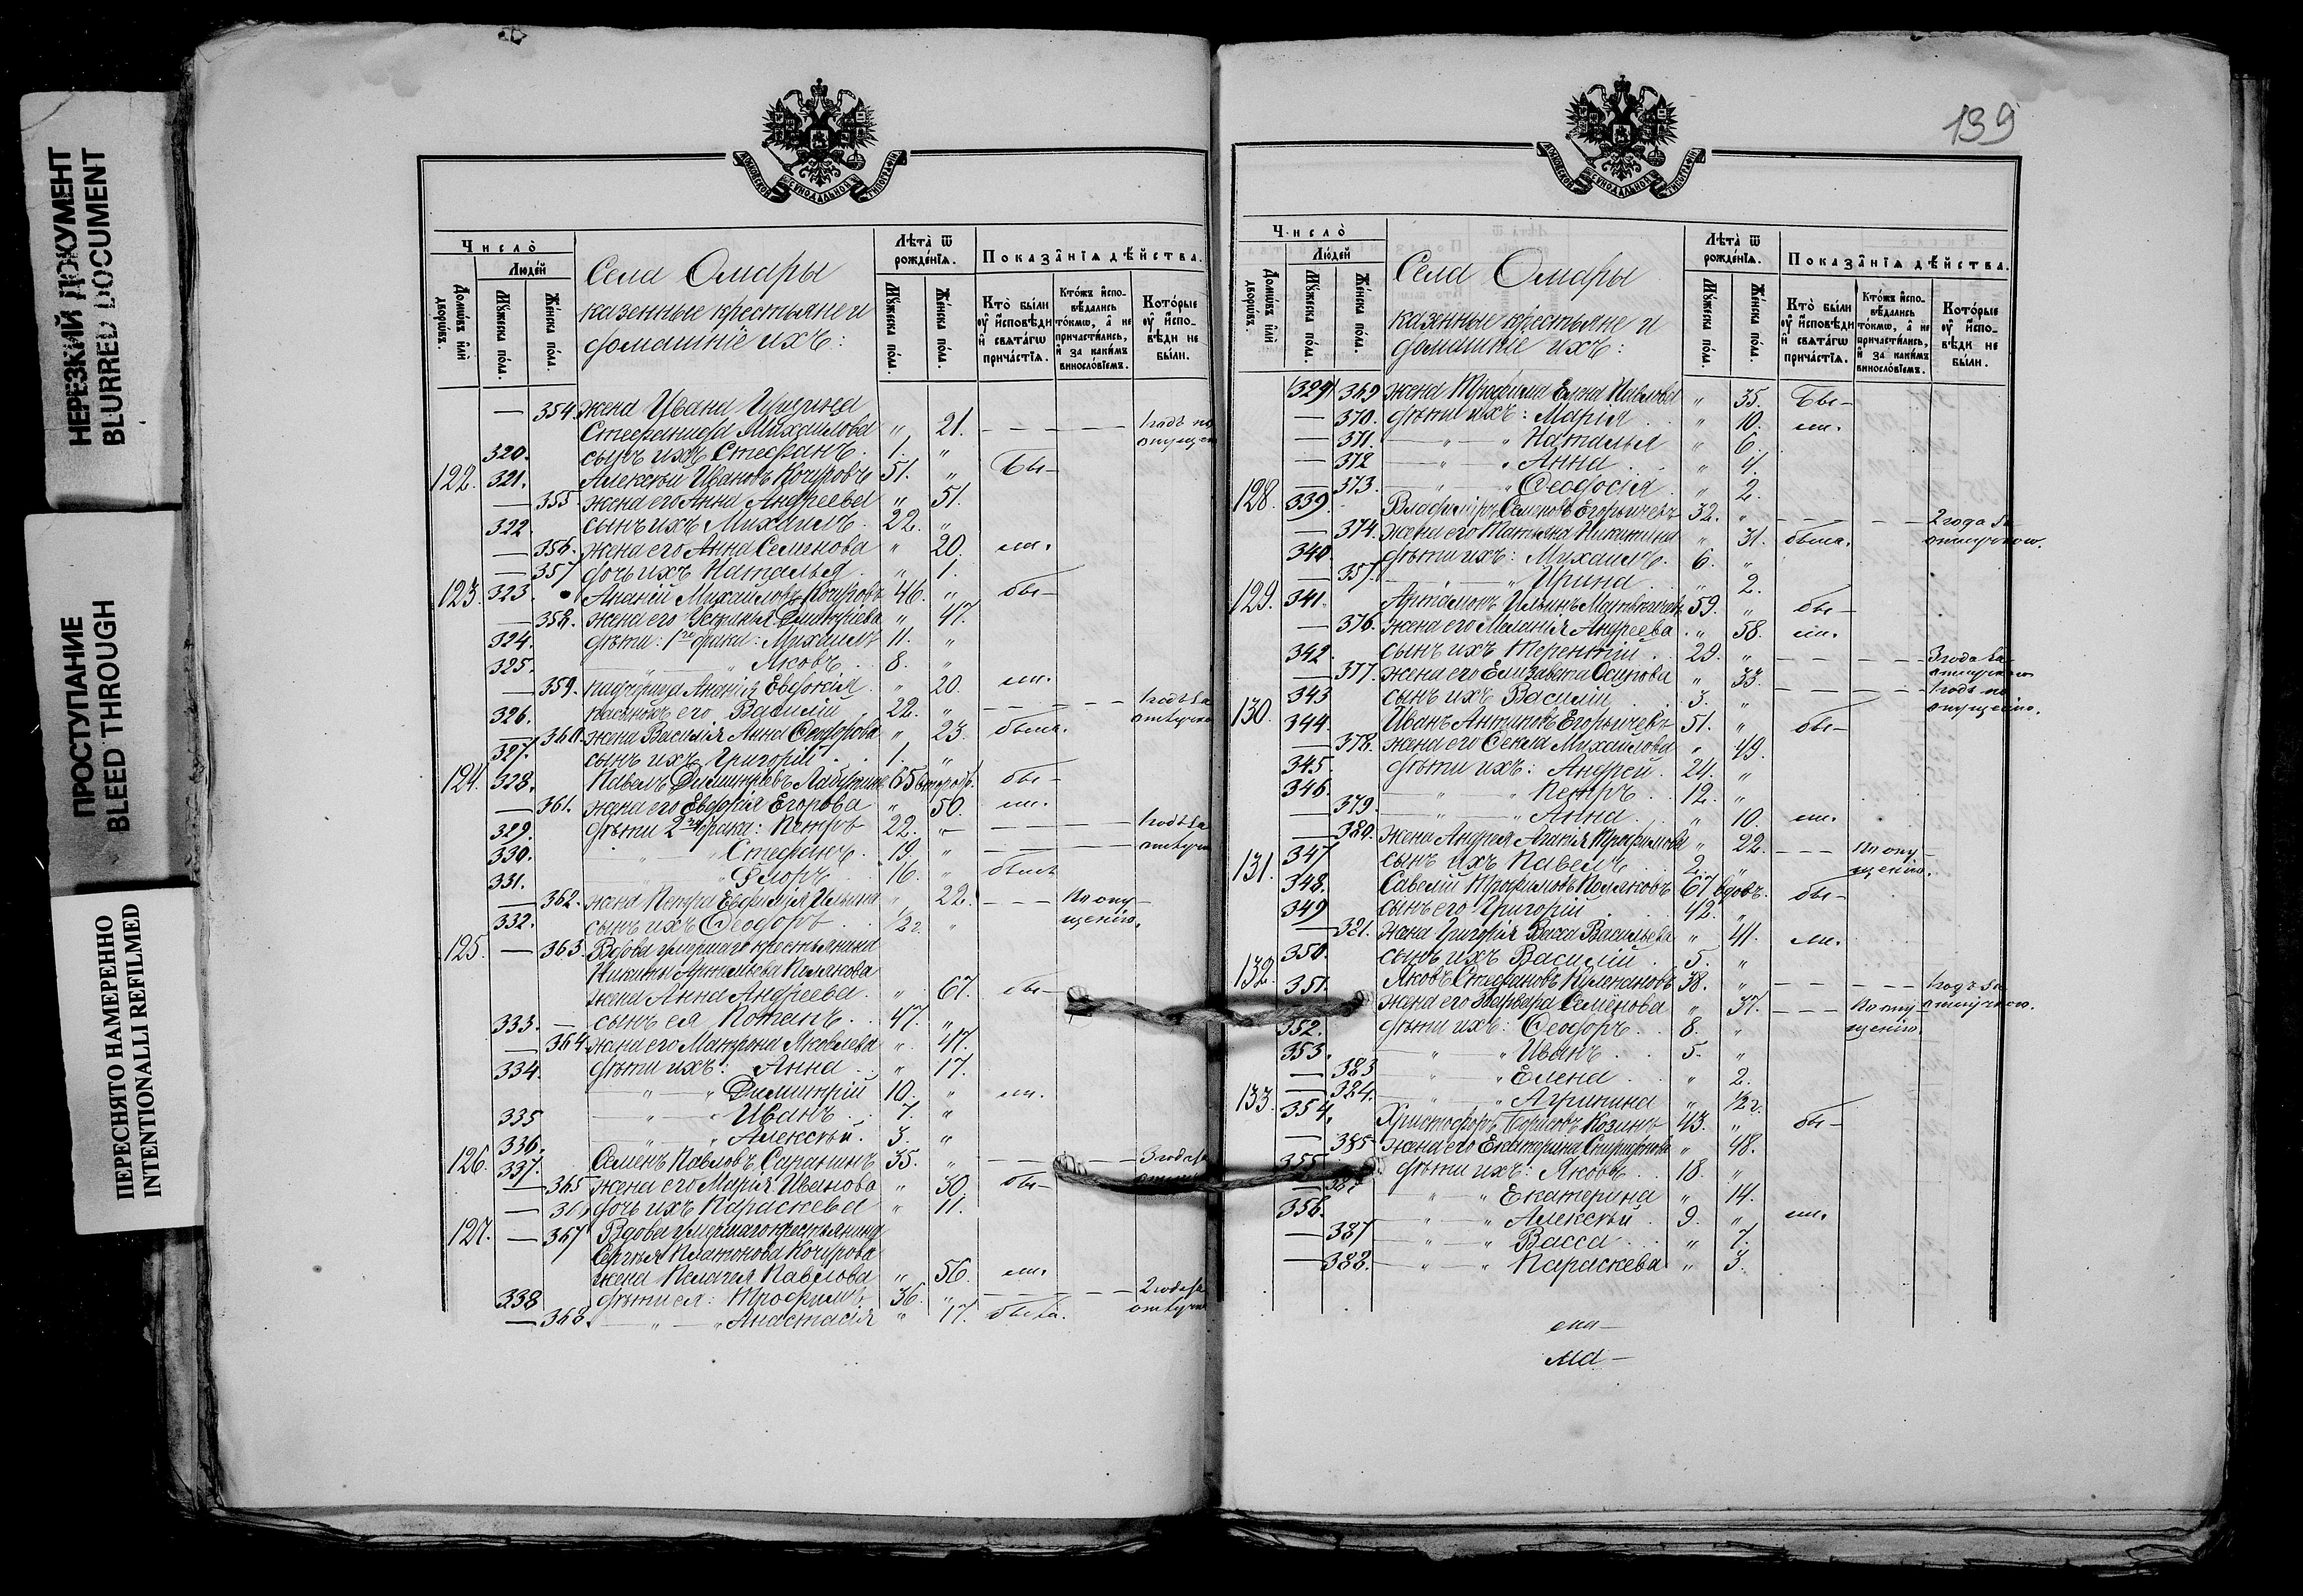 НЕРЕЗКИЙ ДОКУМЕНТ
BLURRED DOCUMENT
ПРОСТУПАНИЕ
BLEED THROUGH
ПЕРЕСНЯТО НАМЕРЕННО
INTENTIONALLI REFILMED
МОСКОВСКОЙ СѴНОДАЛЬНОЙ ТИПОГРАФІИ
Число̀
Люде́й
Домѡ́въ и҆лѝ дворѡ́въ.
Мꙋ́жеска по́ла.
Же́нска по́ла.
Села Омары
казенные крестьяне и
домашніе ихъ:
Лѣта̀ ѿ рожде́нїѧ.
Мꙋ́жеска по́ла.
Же́нска по́ла.
Показа̑нїѧ дѣ́йства.
Кто̀ бы́ли ᲂу҆ и҆сповѣ́ди и҆ свѧта́гѡ прича́стїѧ.
Кто́жъ и҆сповѣ́дались то́кмѡ, а҆ не причасти́лись, и҆ за каки́мъ винослові́емъ.
Кото́рые ᲂу҆ и҆сповѣ́ди не бы́ли.
— 354. жена Ивана
Стефанида Михайлова „ 21. — — — — 1 годъ по
320. сынъ ихъ Стефанъ. 1. „
122. 321. Алексѣй Ивановъ Кочуровъ 51. „ Бы—
— 355 жена его Анна Андреева „ 51.
322 сынъ ихъ Михаилъ. 22. „
— 356. жена его Анна Семенова „ 20. ли.
— 357 дочь ихъ Наталья „ 1.
123. 323. Ананій Михайловъ Кочуровъ 46. „ бы—
— 358. жена его Устинья Димитріева „ 47.
324. дѣти: 1го брака: Михаилъ 11. „
325. — „ — „ Яковъ. 8. „
— 359. падчерица Ананія Евдокія. „ 20. ли.
326. пасынокъ его Василій 22. „ — — — — 1 годъ за
— 360. жена Василія Анна Ѳеодорова „ 23. была.
327. сынъ ихъ Григорій 1. „
124. 328. Павелъ Димитріевъ 65 вторбр. бы—
— 361. жена его Евдокія Егорова „ 50. ли.
329. дѣти 2го брака: Петръ 22. „ — — — 1 годъ за
330. — „ — „ Стефанъ. 19. „ — — —
331. — „ — „ Флоръ. 16. „ былъ
— 362. жена Петра Евфимія Ильина „ 22. — — — По опу-
332. сынъ ихъ Ѳеодоръ ½ г. „ щенію.
125. — 363. Вдова умершаго крестьянина
Никиты Полякова
жена Анна Андреева. „ 67. бы—
333. — сынъ ея Потапъ. 47. „
— 364. жена его Матрона Яковлева „ 47.
334. дѣти ихъ: Анна. „ 17.
— „ — „ Димитрій 10. „ ли.
335 — „ — „ Иванъ. 7. „
336. — „ — „ Алексѣй. 3. „
126. 337. Семенъ Павловъ Саранинъ 35. „ — — — — 3 года за
— 365 жена его Марія Иванова „ 30 бы—
— дочь ихъ Параскева „ 11.
127. — 367 Вдова умершаго крестьянина
Сергѣя Платонова Кочурова
жена Пелагея Павлова „ 56. ли.
338 дѣти ея: Трофимъ. 36. „ — — — — 2 года за
— 368. — „ — „ Анастасія „ 17. была.
139
МОСКОВСКОЙ СѴНОДАЛЬНОЙ ТИПОГРАФІИ
Число̀
Люде́й
Домѡ́въ и҆лѝ дворѡ́въ.
Мꙋ́жеска по́ла.
Же́нска по́ла.
Села Омары
казенные крестьяне и
домашніе ихъ:
Лѣта̀ ѿ рожде́нїѧ.
Мꙋ́жеска по́ла.
Же́нска по́ла.
Показа̑нїѧ дѣ́йства.
Кто̀ бы́ли ᲂу҆ и҆сповѣ́ди и҆ свѧта́гѡ прича́стїѧ.
Кто́жъ и҆сповѣ́дались то́кмѡ, а҆ не причасти́лись, и҆ за каки́мъ винослові́емъ.
Кото́рые ᲂу҆ и҆сповѣ́ди не бы́ли.
369 жена Трофима Елена Павлова „ 35. Бы—
— 370. дѣти ихъ: Марія „ 10. ли.
— 371. — „ — „ Наталья „ 6.
— 372 — „ — „ Анна „ 4.
— 373. — „ — „ Ѳеодосія „ 2.
128. 339. Владиміръ Семеновъ Егорычевъ 32. „ — — — — 2 года за
— 374. жена его Татьяна Никитина „ 31. была. отлучкою.
340 дѣти ихъ: Михаилъ. 6. „
— 357. „ Ирина „ 2.
129. 341. Артамонъ Ильинъ 59. „ бы—
— 376. жена его Меланія Андреева. „ 58. ли.
342. сынъ ихъ Терентій 29. „ — — — — 3 года за
— 377. жена его Елизавета Осипова „ 33. отлучкою
343 сынъ ихъ Василій 3. „ — — — — 1 годъ по
130. 344. Иванъ Антиповъ Егорычевъ 51. „ бы— опущенію.
— 378. жена его Секла Михайлова „ 49.
345. дѣти ихъ: Андрей. 24. „
346. — „ — „ Петръ. 12. „
— 379. — „ — „ Анна „ 10. ли.
— 380. жена Андрея Агапія Трофимова „ 22. — — — По опу-
347 сынъ ихъ Павелъ 2. „ щенію.
131. 348. Савелій Трофимовъ Поляковъ 67 вдовъ. бы—
349 сынъ его Григорій 42. „
— 381. жена Григорія Васса Васильева „ 41. ли.
350. сынъ ихъ Василій 5. „
132. 351. Яковъ Стефановъ 38. „ — — — — 1 годъ за
жена его Варвара Семенова „ 37. — — — По опу- отлучкою.
352. дѣти ихъ: Ѳеодоръ. 8. „ щенію.
353. — „ — „ Иванъ. 5. „
— 383 — „ — „ Елена „ 2.
— 384. — „ — „ Агрипина „ ½ г.
133. 354. Христофоръ Борисовъ Козинъ 43. „ бы—
— 385 жена его Екатерина Спиридонова „ 48.
355 дѣти ихъ: Яковъ 18. „
— „ — „ Екатерина „ 14.
356. — „ — „ Алексѣй. 9. „ ли.
— 387 — „ — „ Васса „ 7.
— 388. — „ — „ Параскева „ 3.